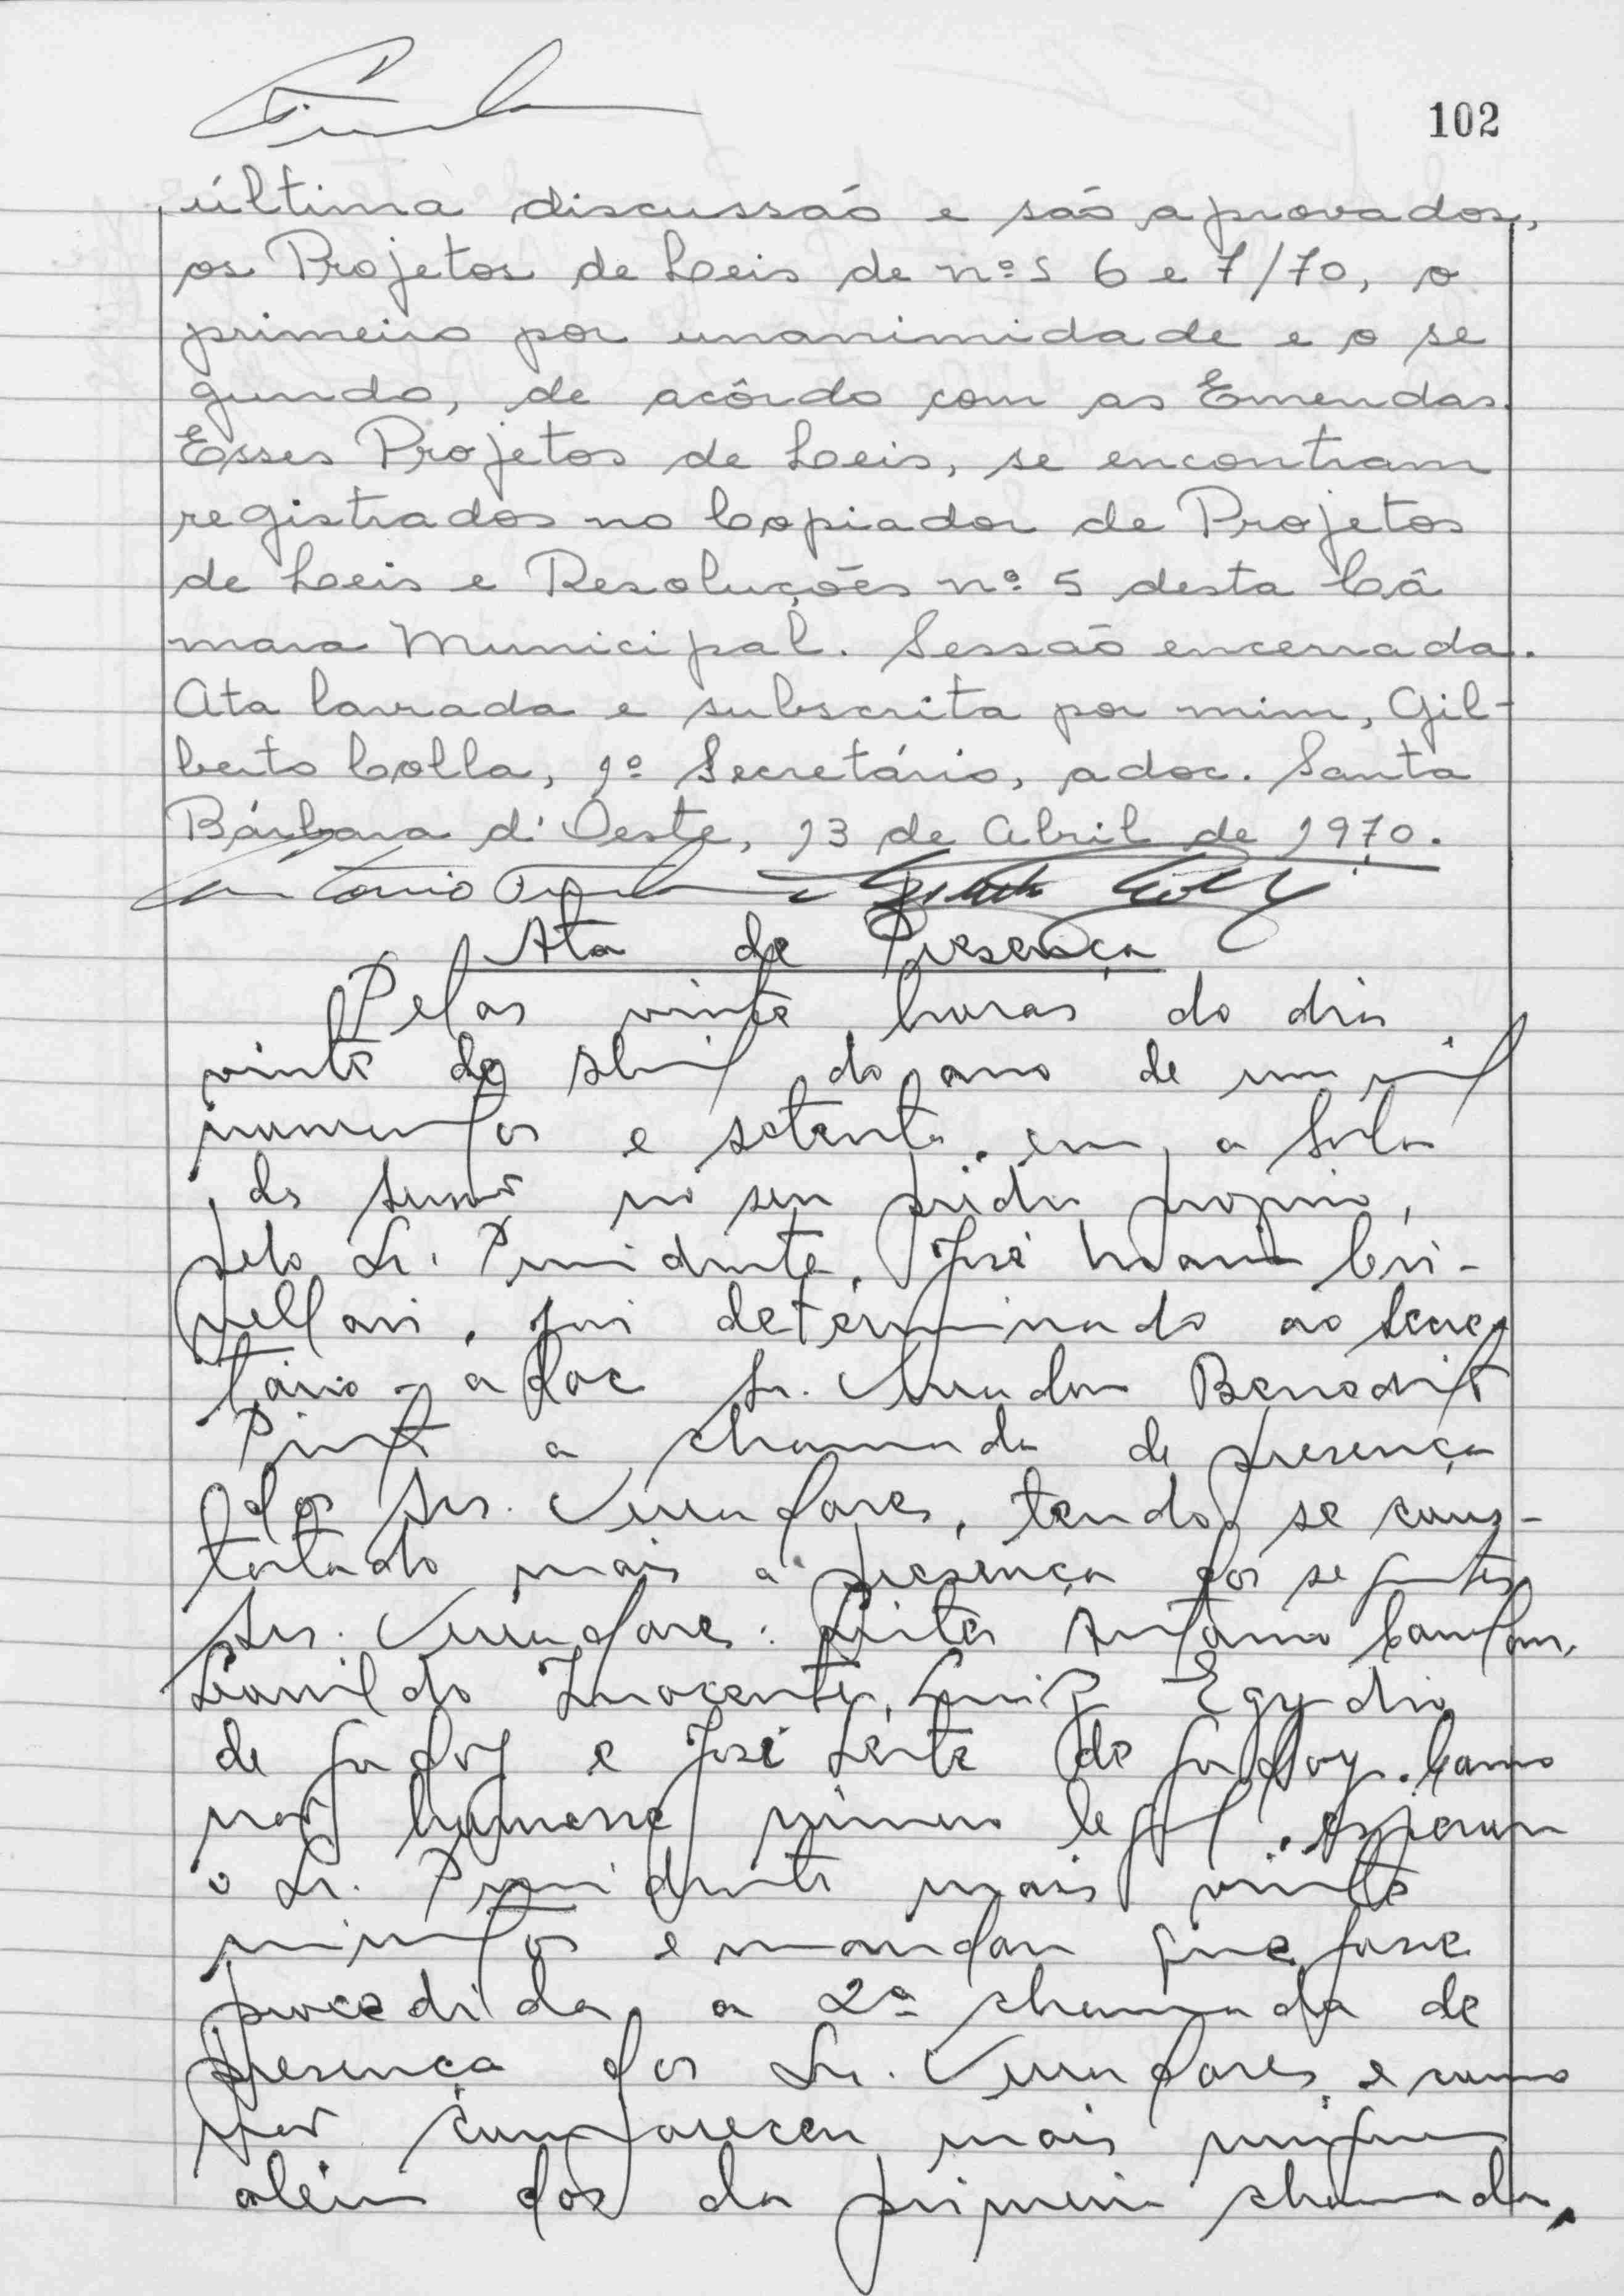 102
última discussão e são aprovados,
os Projetos de Leis de nºs 6 e 7/70, o
primeiro por unanimidade e o se
gundo, de acôrdo com as Emendas.
Esses Projetos de Leis, se encontram
registrados no Copiador de Projetos
de Leis e Resoluções nº 5 desta Câ
mara Municipal. Sessão encerrada.
Ata lavrada e subscrita por mim, Gil-
berto Colla, 1º Secretário, adoc. Santa
Bárbara d'Oeste, 13 de Abril de 1970.
Antonio
Ata de Presença
Pelas vinte horas do dia
vinte de Abril do ano de um mil
novecentos e setenta, em a Sala
no seu prédio proprio,
pelo Sr. Presidente, José Maria
foi determinado ao Secre
tário - adoc Sr. Vereador Benedito
Pinto a chamada de presença
dos Srs. Vereadores, tendo se cons-
tatado mais a presença dos seguintes
Srs. Vereadores: Antonio
Leonildo Inocente, Luiz Egydio
de Godoy e José Leite de Godoy. Como
não houvesse número legal, esperou
o Sr. Presidente mais vinte
minutos e mandou que fosse
procedida a 2ª chamada de
presença dos Sr. Vereadores, e como
não compareceu mais ninguem
além dos da primeira chamada,